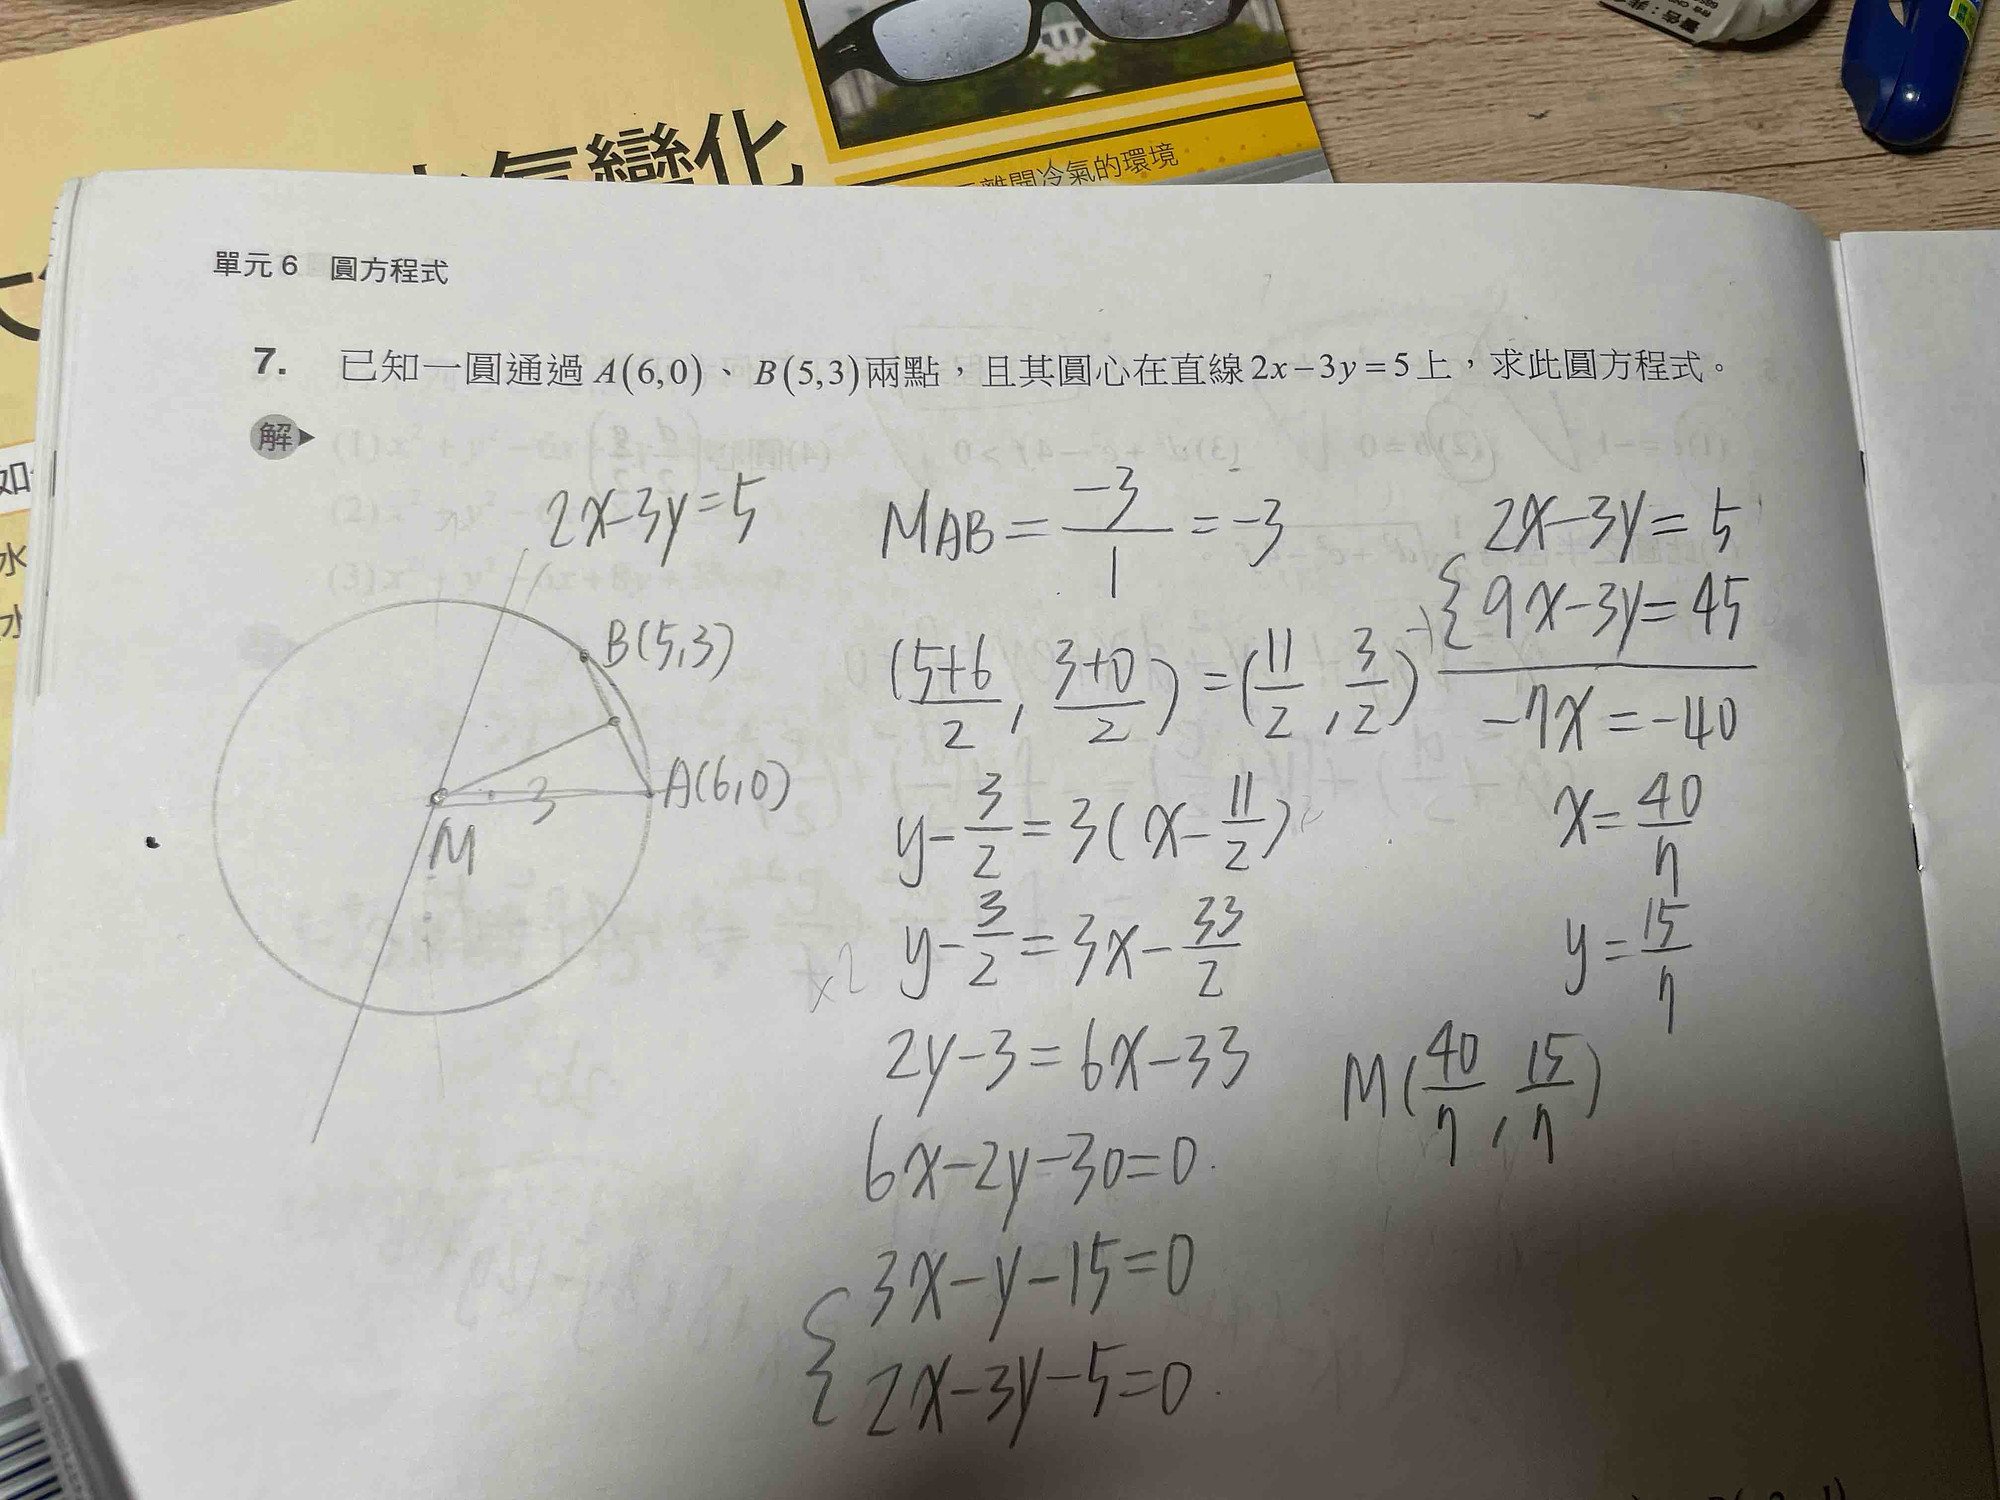 變化
離開冷氣的環境
單元 6 圓方程式
7. 已知一圓通過 A(6,0)、B(5,3)兩點,且其圓心在直線 2x−3y=5 上,求此圓方程式。
解
2x-3y=5
B(5,3)
A(6,0)
3
M
MAB = -3/1 = -3
(5+6/2, 3+0/2) = (11/2, 3/2)
y-3/2=3(x-11/2)
x2 y-3/2=3x-33/2
2y-3=6x-33
6x-2y-30=0
{3x-y-15=0
2x-3y-5=0
2x-3y=5
{9x-3y=45
-7x=-40
x=40/7
y=15/7
M(40/7, 15/7)
如
水
水